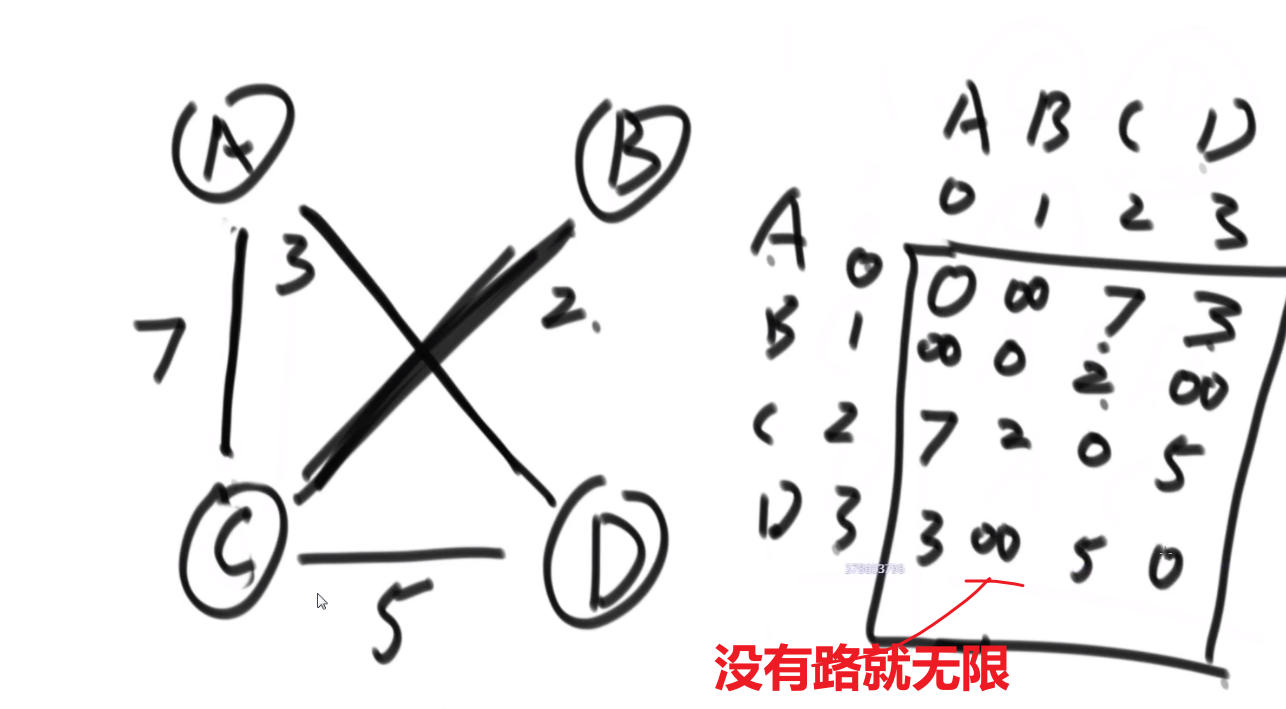 A B
3
7 2.
C D
5
A B C D
0 1 2 3
A 0 0 ∞ 7 3
B 1 ∞ 0 2 ∞
C 2 7 2 0 5
D 3 3 ∞ 5 0
没有路就无限